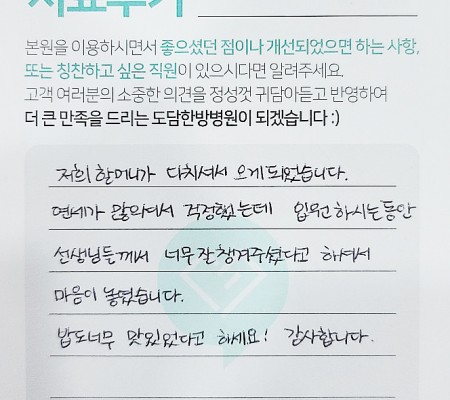 치료후기
본원을 이용하시면서 좋으셨던 점이나 개선되었으면 하는 사항,
또는 칭찬하고 싶은 직원이 있으시다면 알려주세요.
고객 여러분의 소중한 의견을 정성껏 귀담아듣고 반영하여
더 큰 만족을 드리는 도담한방병원이 되겠습니다 :)
저희 할머니가 다치셔서 오게되었습니다.
연세가 많의여서 걱정했는데 입원하시는동안
선생님들께서 너무잘챙겨주셨다고 하셔서
마음이 놓였습니다.
밥도너무 맛있었다고 하세요! 감사합니다.